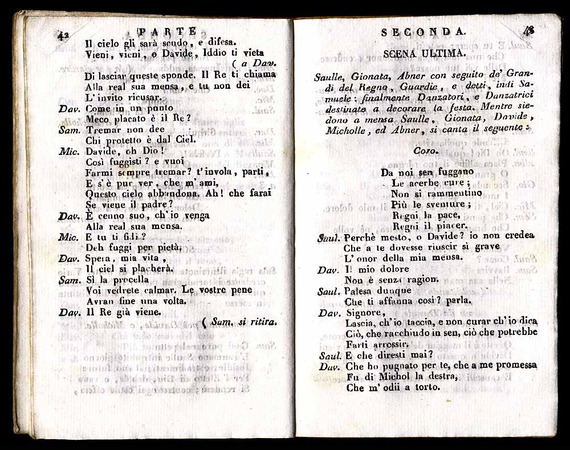 42 PARTE
Il cielo gli sarà scudo, e difesa.
Vieni, vieni, o Davide, Iddio ti vieta
( a Dav.
Di lasciar queste sponde. Il Re ti chiama
Alla real sua mensa, e tu non dei
L' invito ricusar.
Dav. Come in un punto
Meco placato è il Re?
Sam. Tremar non dee
Chi protetto è dal Ciel.
Mic. Davide, oh Dio!
Così fuggisti? e vuoi
Farmi sempre tremar? t'invola, parti,
E s'è pur ver, che m' ami,
Questo cielo abbandona. Ah! che farai
Se viene il padre?
Dav. È cenno suo, ch'io venga
Alla real sua mensa.
Mic. E tu ti fidi?
Deh fuggi per pietà,
Dav. Spera, mia vita,
Il ciel si placherà.
Sam. Sì la procella
Voi vedrete calmar. Le vostre pene
Avran fine una volta.
Dav. Il Re già viene.
( Sam. si ritira.
SECONDA. 43
SCENA ULTIMA.
Saulle, Gionata, Abner con seguito de' Gran-
di del Regno, Guardie, e detti, indi Sa-
muele: finalmente Danzatori, e Danzatrici
destinate a decorar la festa. Mentre sie-
dono a mensa Saulle, Gionata, Davide,
Micholle, ed Abner, si canta il seguente:
Coro.
Da noi sen fuggano
Le acerbe cure;
Non si rammentino
Più le sventure;
Regni la pace,
Regni il piacer.
Saul. Perchè mesto, o Davide? io non credea
Che a te dovesse riuscir sì grave
L' onor della mia mensa.
Dav. Il mio dolore
Non è senza ragion.
Saul. Palesa dunque
Che ti affanna così? parla.
Dav. Signore,
Lascia, ch'io taccia, e non curar ch'io dica
Ciò, che racchiudo in sen, ciò che potrebbe
Farti arrossir.
Saul. E che diresti mai?
Dav. Che ho pugnato per te, che a me promessa
Fu di Michol la destra,
Che m' odii a torto.